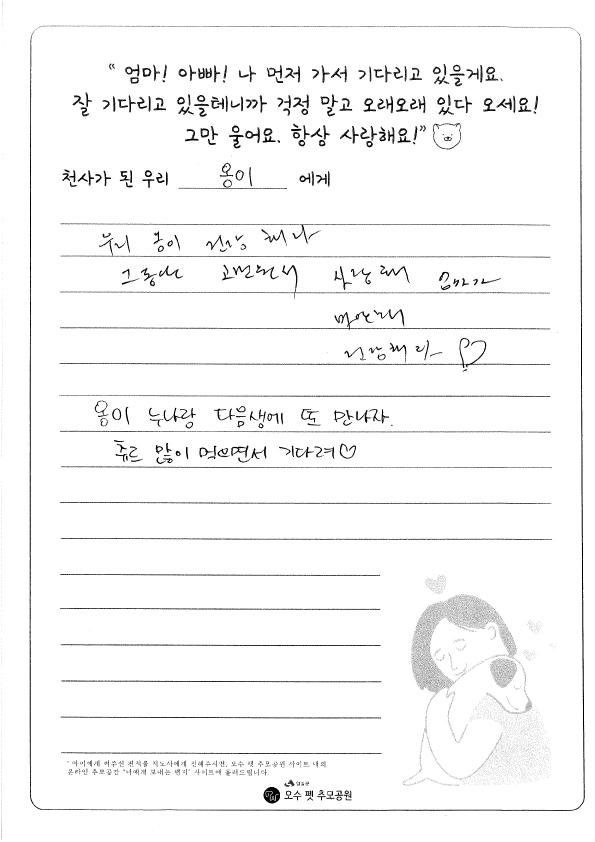 “ 엄마! 아빠! 나 먼저 가서 기다리고 있을게요.
잘 기다리고 있을테니까 걱정 말고 오래오래 있다 오세요!
그만 울어요. 항상 사랑해요!”
천사가 된 우리 옹이 에게
우리 옹이 건강해라
그동안 고마워서 사랑해 엄마가
미안해
건강해라 ♡
옹이 누나랑 다음생에 또 만나자.
츄르 많이 먹으면서 기다려♡
* 아이에게 써주신 편지를 지도사에게 전해주시면, 오수 펫 추모공원 사이트 내의
온라인 추모공간 "너에게 보내는 편지" 사이트에 올려드립니다.
임실군
오수 펫 추모공원